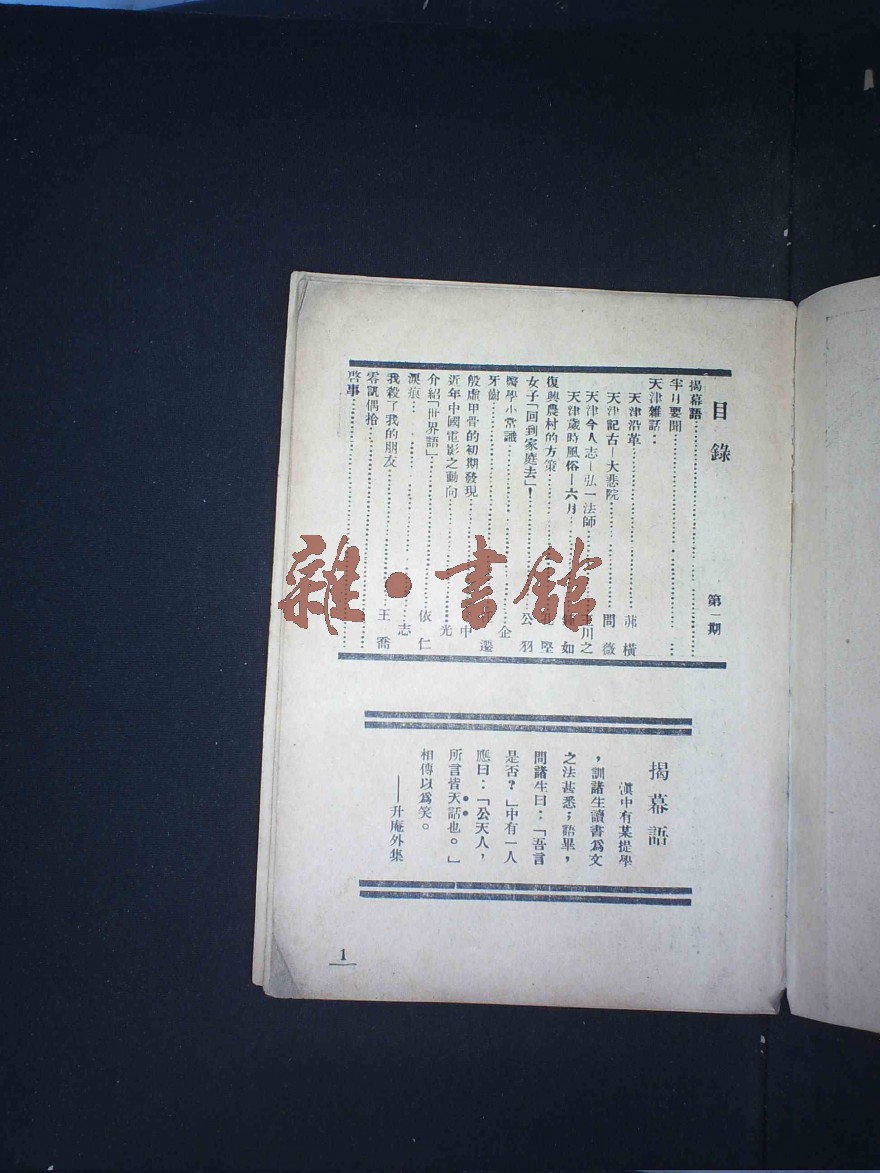 目錄
第一期
揭幕語
半月要聞
天津雜話：
天津沿革 茀橫
天津記古—大悲院 問薇
天津今人志—弘一法師 王川之
天津歲時風俗—六月 如
復興農村的方策 堅
女子「回到家庭去」！ 公羽
醫學小常識 企
牙齒 遷
殷虛甲骨的初期發現 中
近年中國電影之動向 光
介紹「世界語」 依仁
淚痕 志
我殺了我的朋友 王喬
零訊偶拾
啓事
雜•書館
揭幕語
滇中有某提學
，訓諸生讀書爲文
之法甚悉；語畢，
問諸生曰：「吾言
是否？」中有一人
應曰：「公天人，
所言皆天話也。」
相傳以爲笑。
——升庵外集
1